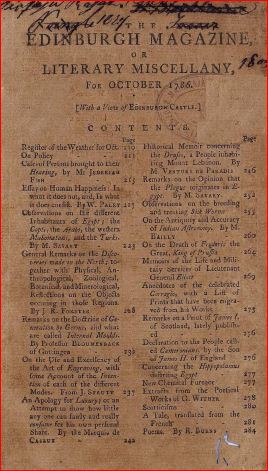 THE
EDINBURGH MAGAZINE,
OR
LITERARY MISCELLANY,
FOR OCTOBER 1786.
[With a View of EDINBURGH CASTLE.]
CONTENTS.
Page
Register of the Weather for Oct. 210
On Policy 211
Cases of Persons brought to their
Hearing, by Mr JEREMIAH
FISH 213
Essay on Human Happiness: In
what it does not, and, in what
it does consist. By W. PALEY 215
Observations on the different
Inhabitants of Egypt; the
Copts, the Arabs, the western
Mahometans, and the Turks.
By M. SAVARY 223
General Remarks on the Disco-
veries made in the North; to-
gether with Physical, An-
thropological, Zoological,
Botanical, and Mineralogical,
Reflections on the Objects
occurring in those Regions.
By J. R. FORSTER 228
Remarks on the Doctrine of Ge-
neration by Germs, and what
are called Internal Moulds.
By Professor BLUMENBACH
of Gottingen 232
On the Use and Excellency of
the Art of Engraving, with
some Account of the Inven-
tion of each of the different
Modes. From J. STRUTT 237
An Apology for Luxury; or an
Attempt to show how little
any one can fairly and really
consume for his own personal
Share. By the Marquis de
CASAUX 242
Page
Historical Memoir concerning
the Druses, a People inhabit-
ing Mount Lebanon. By
M. VENTURE de PARADIS 246
Remarks on the Opinion that
the Plague originates in E-
gypt. By M. SAVARY. 252
Observations on the breeding
and treating Silk Worms 255
On the Antiquity and Accuracy
of Indian Astronomy. By M.
BAILLY 260
On the Death of Frederic the
Great, King of Prussia 262
Memoirs of the Life and Mili-
tary Services of Lieutenant
General Elliot 269
Anecdotes of the celebrated
Correggio, with a List of
Prints that have been engra-
ved from his Works 275
Remarks on a Poem of James I.
of Scotland, lately publish-
ed 276
Declaration to the People call-
ed Cameronians, by the Son
of James II. of England 276
Concerning the Hippopotamus
differing Egypt 277
New Chemical Furnace 277
Extracts from the Poetical
Works of G. WITHER 278
Scotticisms 280
A Tale, translated from the
French 281
Poems. By R. BURNS 284